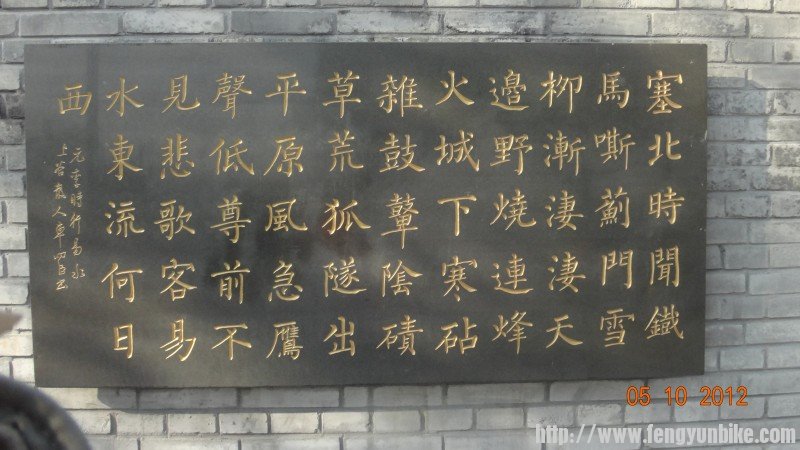 塞北時聞鐵
馬嘶薊門雪
柳漸淒淒天
邊野燒連烽
火城下寒砧
雜鼓鼙陰磧
草荒狐隧出
平原風急鷹
聲低尊前不
見悲歌客易
水東流何日
西
元李時行易水
上谷散人單
05 10 2012
http://www.fengyunbike.com